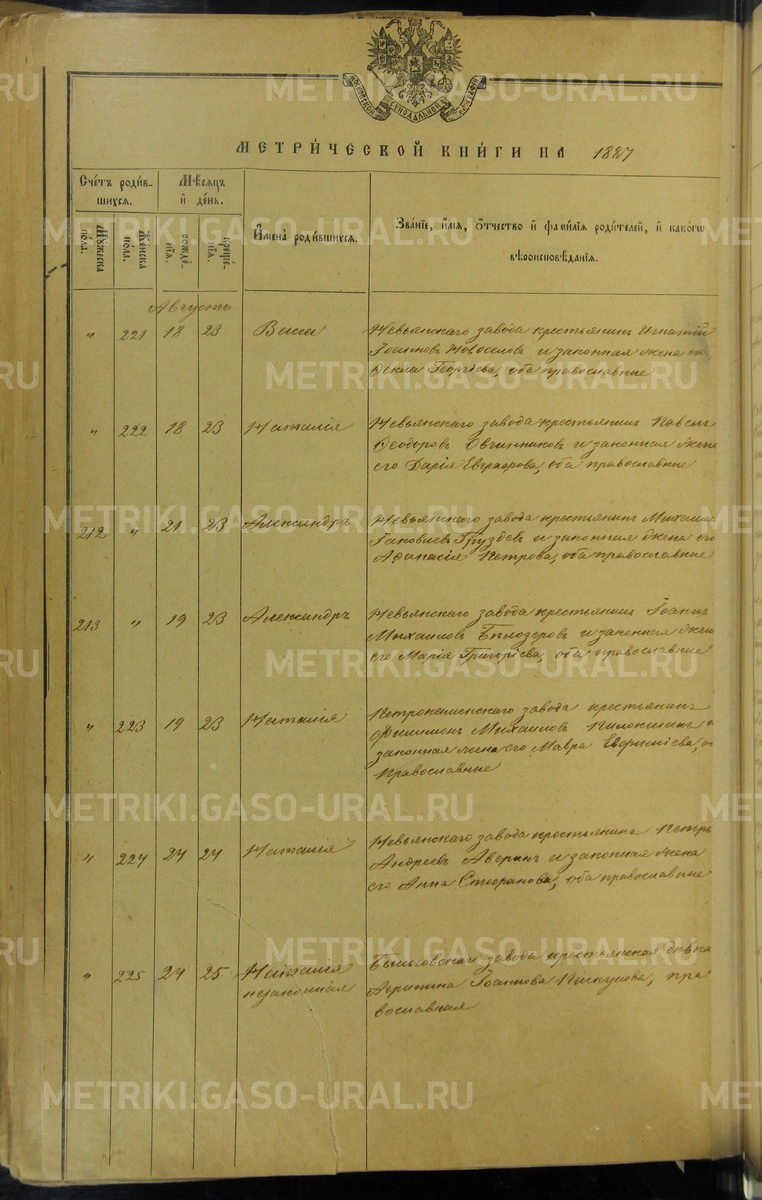 МОСКОВСКОЙ СѴНОДАЛЬНОЙ ТѴПОГРАФІИ
МЕТРИ́ЧЕСКОЙ КНИ́ГИ НА 1887
Сче́тъ роди́в-
шихся.
Мѣ́сяцъ
и҆ де́нь.
И҆мена̀ роди́вшихся.
Зва́нїе, и҆́мя, о҆́тчество и҆ фами́лїя роди́телей, и҆ како́гѡ
вѣроисповѣ́данїя.
Мꙋ́жеска
по́ла.
Же́нска
по́ла.
рожде́-
нїя.
креще́-
нїя.
Августъ
" 221 18 23 Васса Невьянскаго завода крестьянинъ Игнатій
Іоанновъ Новоселовъ и законная жена его
Ѳекла Георгіева, оба православные
" 222 18 23 Наталія Невьянскаго завода крестьянинъ Павелъ
Ѳеодоровъ Овчинниковъ и законная жена
его Дарія Евграфова, оба православные
212 " 21 23 Александръ Невьянскаго завода крестьянинъ Михаилъ
Іаковлевъ Груздевъ и законная жена его
Аѳанасія Петрова, оба православные
213 " 19 23 Александръ Невьянскаго завода крестьянинъ Іоаннъ
Михаиловъ Бѣлозеровъ и законная жена
его Марія Григоріева, оба православные
" 223 19 23 Наталія Петрокаменскаго завода крестьянинъ
Филимонъ Михаиловъ и
законная жена его Мавра Евфиміева, об
православные
" 224 24 24 Наталія Невьянскаго завода крестьянинъ Петръ
Андреевъ Аверинъ и законная жена
его Анна Стефанова, оба православные
" 225 24 25 Наталія
незаконная
Быньговскаго завода крестьянская дѣвка
Агрипина Іоаннова Пискунова, пра
вославная
METRIKI.GASO-URAL.RU